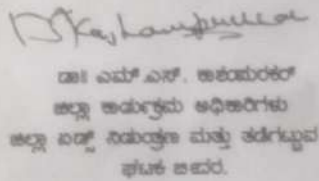 ಡಾ॥ ಎಮ್.ಎಸ್.
ಜಿಲ್ಲಾ ಕಾರ್ಯಕ್ರಮ ಅಧಿಕಾರಿಗಳು
ಜಿಲ್ಲಾ ಏಡ್ಸ್ ನಿಯಂತ್ರಣ ಮತ್ತು ತಡೆಗಟ್ಟುವ
ಘಟಕ ಬೀದರ.